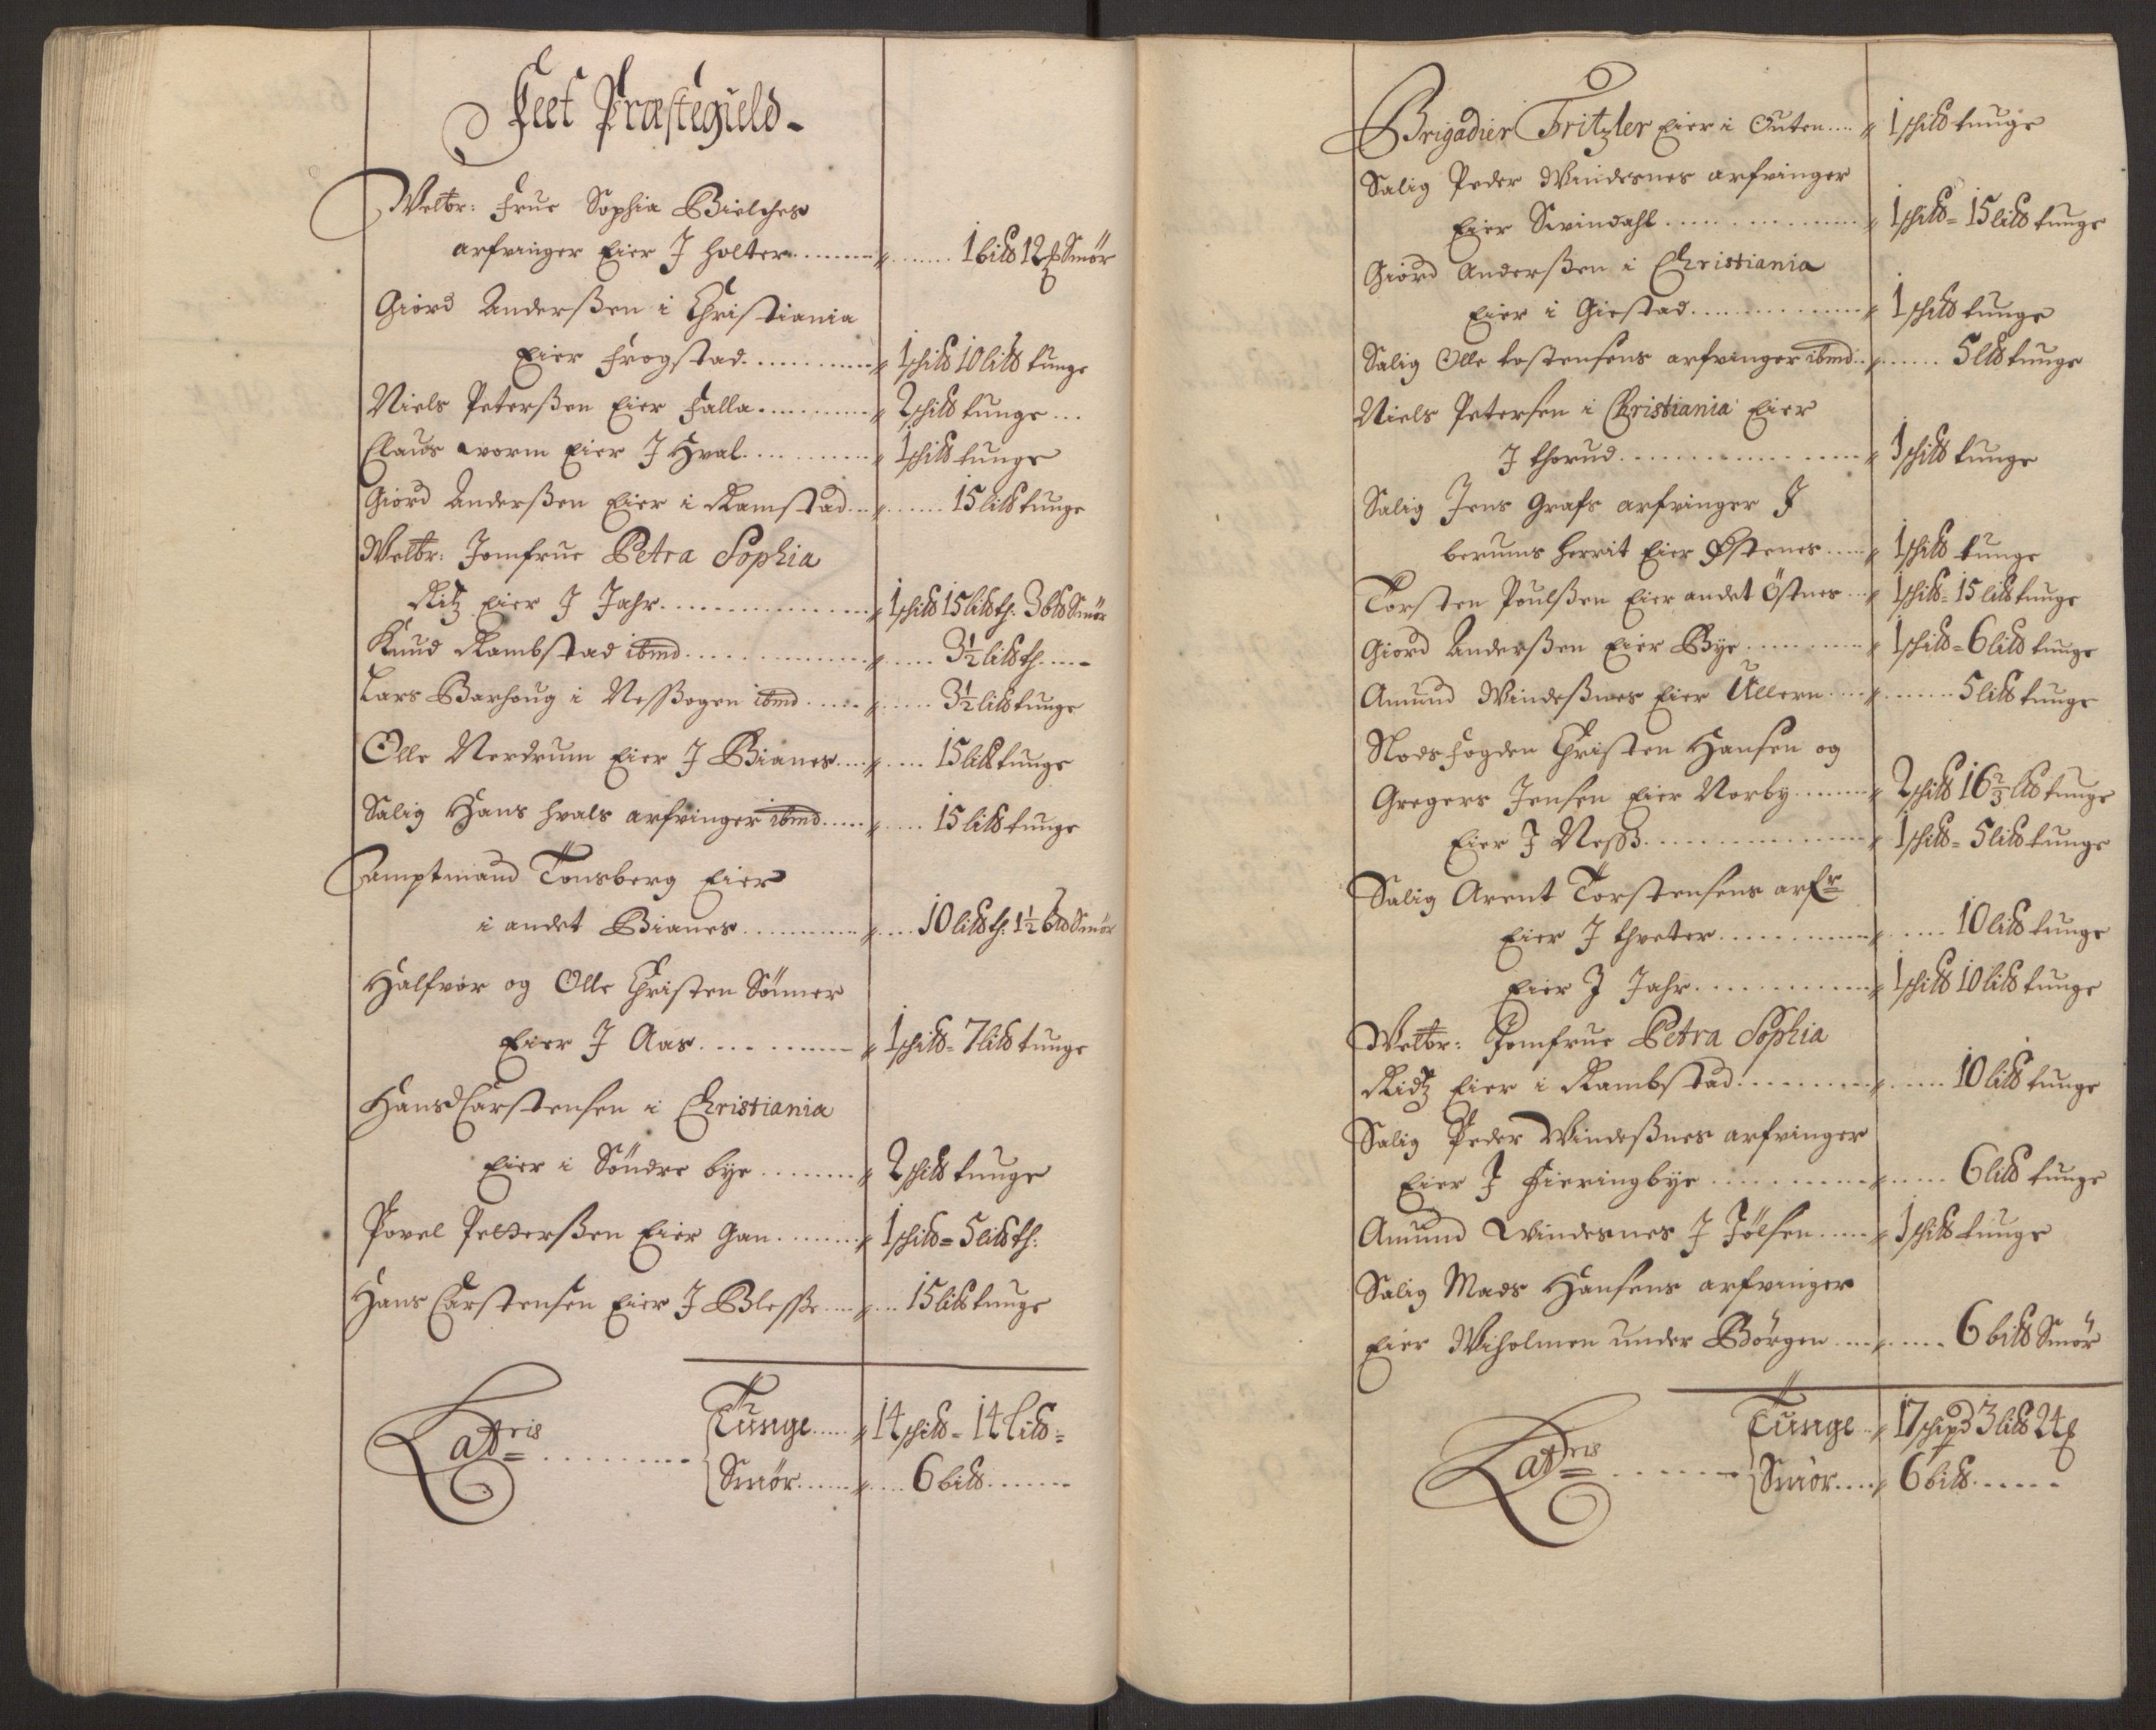 Feet Præstegield
Welbr: Frue Sophia Bielches
arfvinger Eier J Holter ........ " ...... 1 bild 12 ℔ Smör
Giord Anderßen i Christiania
Eier Frogstad ........ " 1 skild 10 lild tunge
Niels Peterßen Eier Falla ........ " 2 skild tunge ...
Claus worm Eier J Hval ........ " 1 skild tunge
Giord Anderßen Eier i Ramstad ... " ...... 15 lild tunge
Welbr: Jomfrue Petra Sophia
Ritz Eier J Jahr ........ " 1 skild 15 lild t. 3 bd Smör
Knud Rambstad ibmd ........ " ..... 3½ lild t. ....
Lars Barhoug i Neßogen ibmd ..... " ..... 3½ lild tunge
Olle Nerdrum Eier J Bianes .... " .... 15 lild tunge
Salig Hans Hvals arfvinger ibmd ..... " .... 15 lild tunge
Lamptmand Tönsberg Eier
i andet Bianes ........ " .... 10 lild t. 1½ bd Smör
Halfvor og Olle Christen Sönner
Eier J Aas ........ " 1 skild = 7 lild tunge
Hans Carstensen i Christiania
Eier i Söndre bye ........ " 2 skild tunge
Povel Petterßen Eier Gan ........ " 1 skild = 5 lild t.
Hans Carstensen Eier J Bleße .... " ... 15 lild tunge
Latris ........ Tunge ..... " 14 skild = 14 lild =
Smör ...... " .... 6 bild ......
Brigadier Tritzler Eier i Outen .... " 1 skild tunge
Salig Peder Windesnes arfvinger
Eier Swindahl ........ " 1 skild = 15 lild tunge
Giord Anderßen i Christiania
Eier i Gistad ........ " 1 skild tunge
Salig Olle tostensens arfvinger ibmd .. " ...... 5 lild tunge
Niels Petersen i Christiania Eier
J thorud ........ " 1 skild tunge
Salig Jens Grafs arfvinger J
berums herrit Eier Östenes ..... " 1 skild tunge
Torsten Poulßen Eier andet Östnes ... " 1 skild = 15 lild tunge
Giord Anderßen Eier Bye ........ " 1 skild = 6 lild tunge
Amund Windeßnes Eier Ullern .... " ....... 5 lild tunge
Slodsfogden Christen Hansen og
Gregers Jensen Eier Norby ....... " 2 skild 16⅔ lild tunge
Eier J Neß ........ " 1 skild = 5 lild tunge
Salig Arent Torstensens arfr
Eier J thveter ........ " ..... 10 lild tunge
Eier J Jahr ........ " 1 skild 10 lild tunge
Welbr: Jomfrue Petra Sophia
Ridtz Eier i Rambstad ........ " ..... 10 lild tunge
Salig Peder Windeßnes arfvinger
Eier J Fieringbye ........ " ..... 6 lild tunge
Amund Windesnes J Jölsen ..... " 1 skild tunge
Salig Mads Hansens arfvinger
Eier Wiholmen under Börgen .... " ..... 6 bild Smör
Latris ....... Tunge .. " 17 skipd 3 lild 24 ℔
Smör .... " 6 bild .....